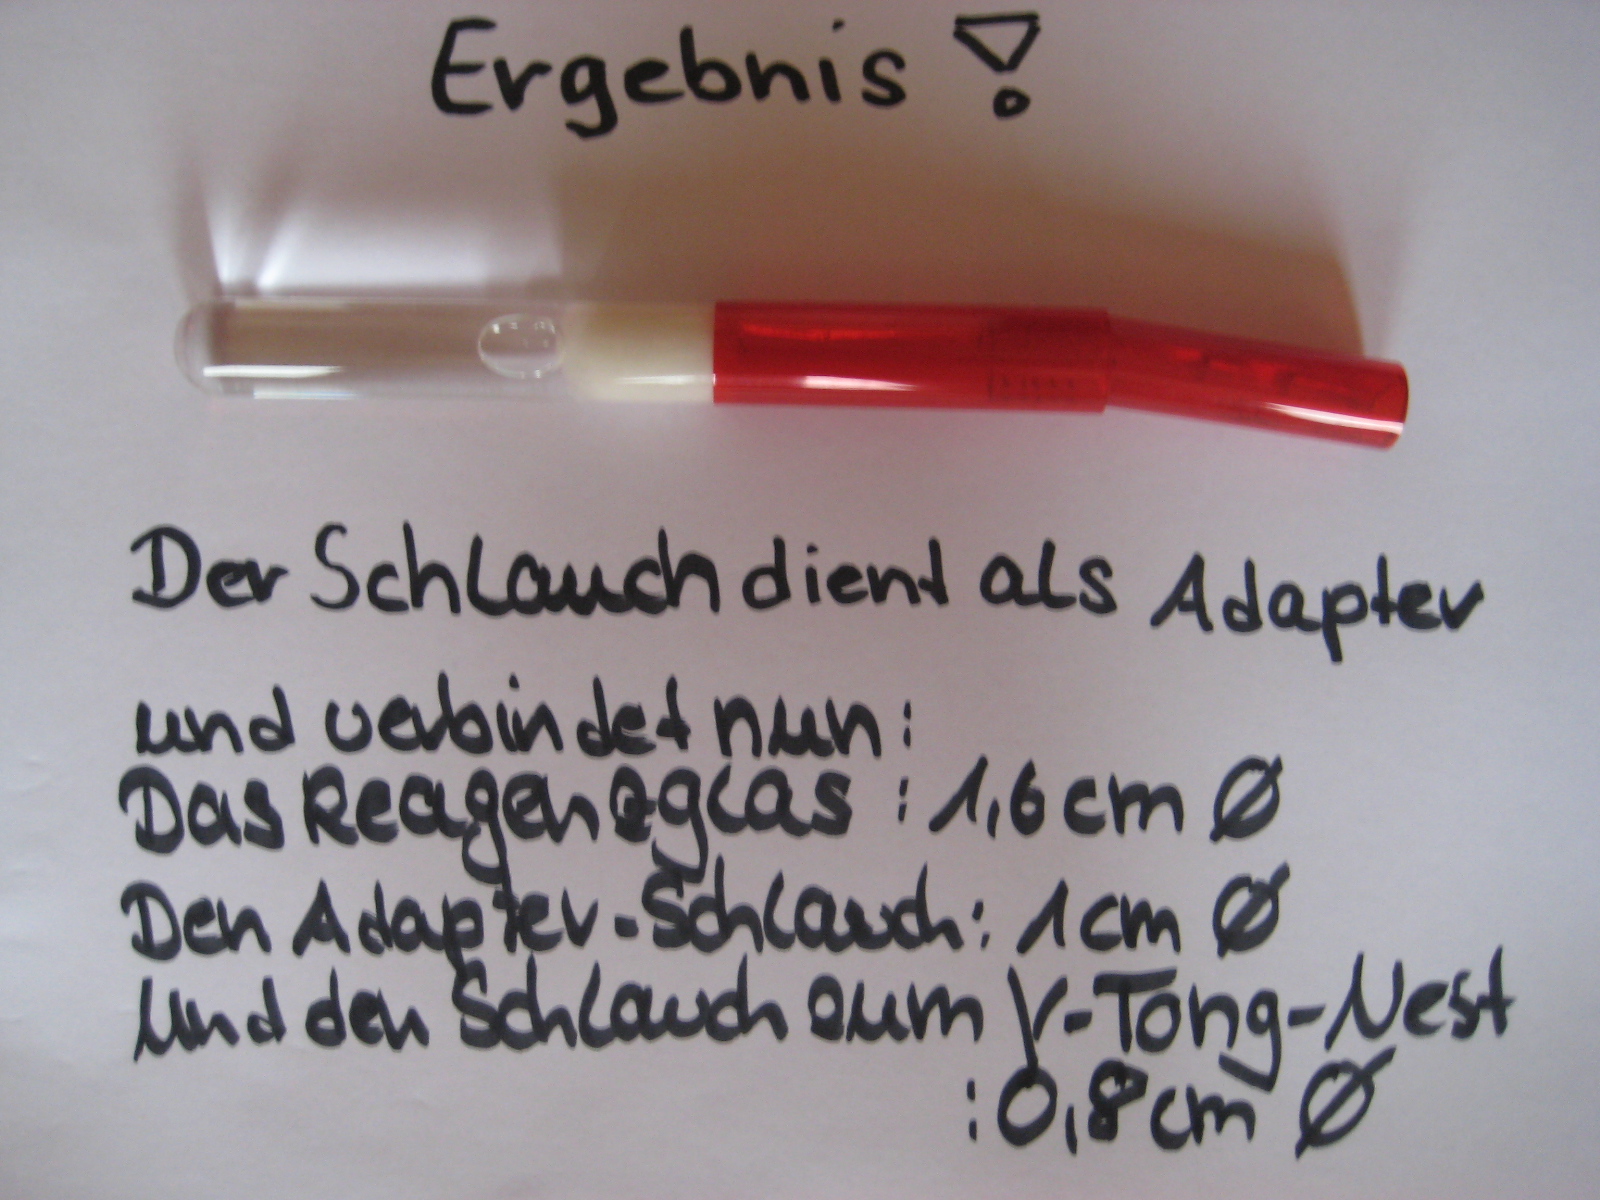 Ergebnis !
Der Schlauch dient als Adapter
und verbindet nun :
Das Reagenzglas : 1,6 cm Ø
Den Adapter-Schlauch : 1 cm Ø
Und den Schlauch zum Y-Tong-Nest
: 0,8 cm Ø